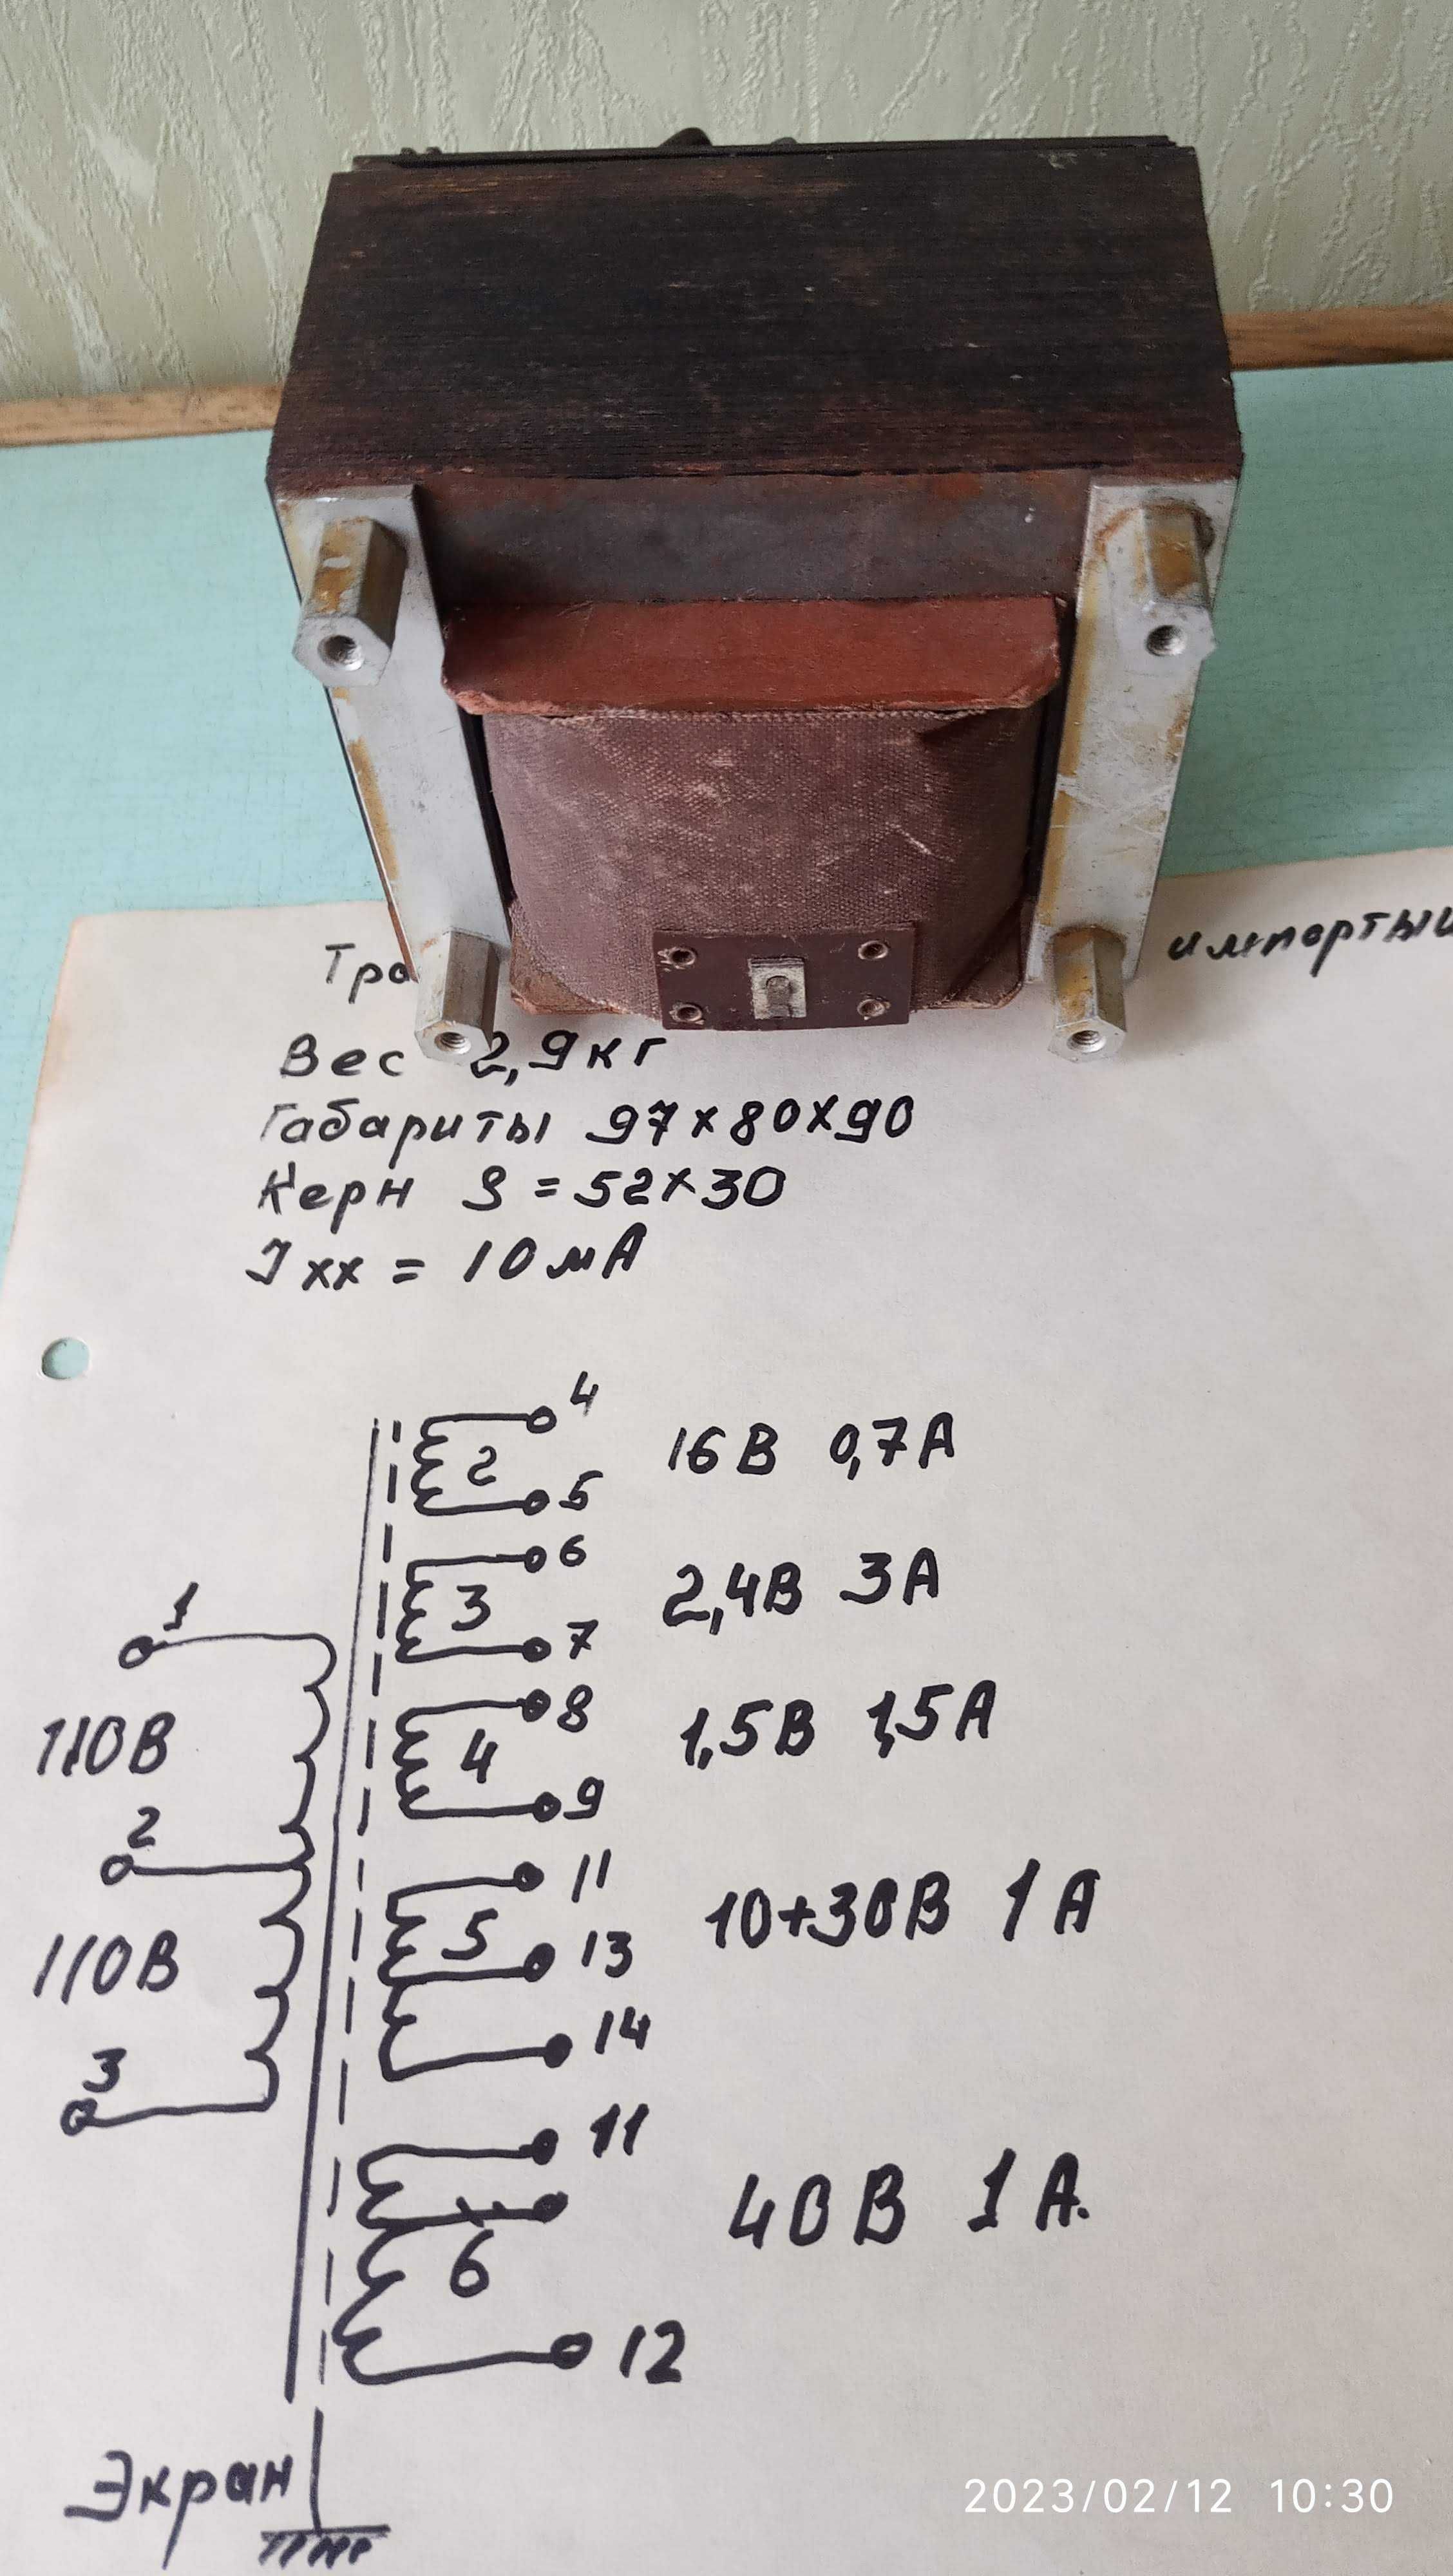 импортный
Вес 2,9кг
Габариты 97х80х90
Керн S = 52х30
Iхх = 10мА
4
2
16В 0,7А
5
6
3
2,4В 3А
7
1
8
110В
4
1,5В 1,5А
9
2
11
5
10+30В 1А
110В
13
14
3
11
40В 1А.
6
12
Экран
2023/02/12 10:30